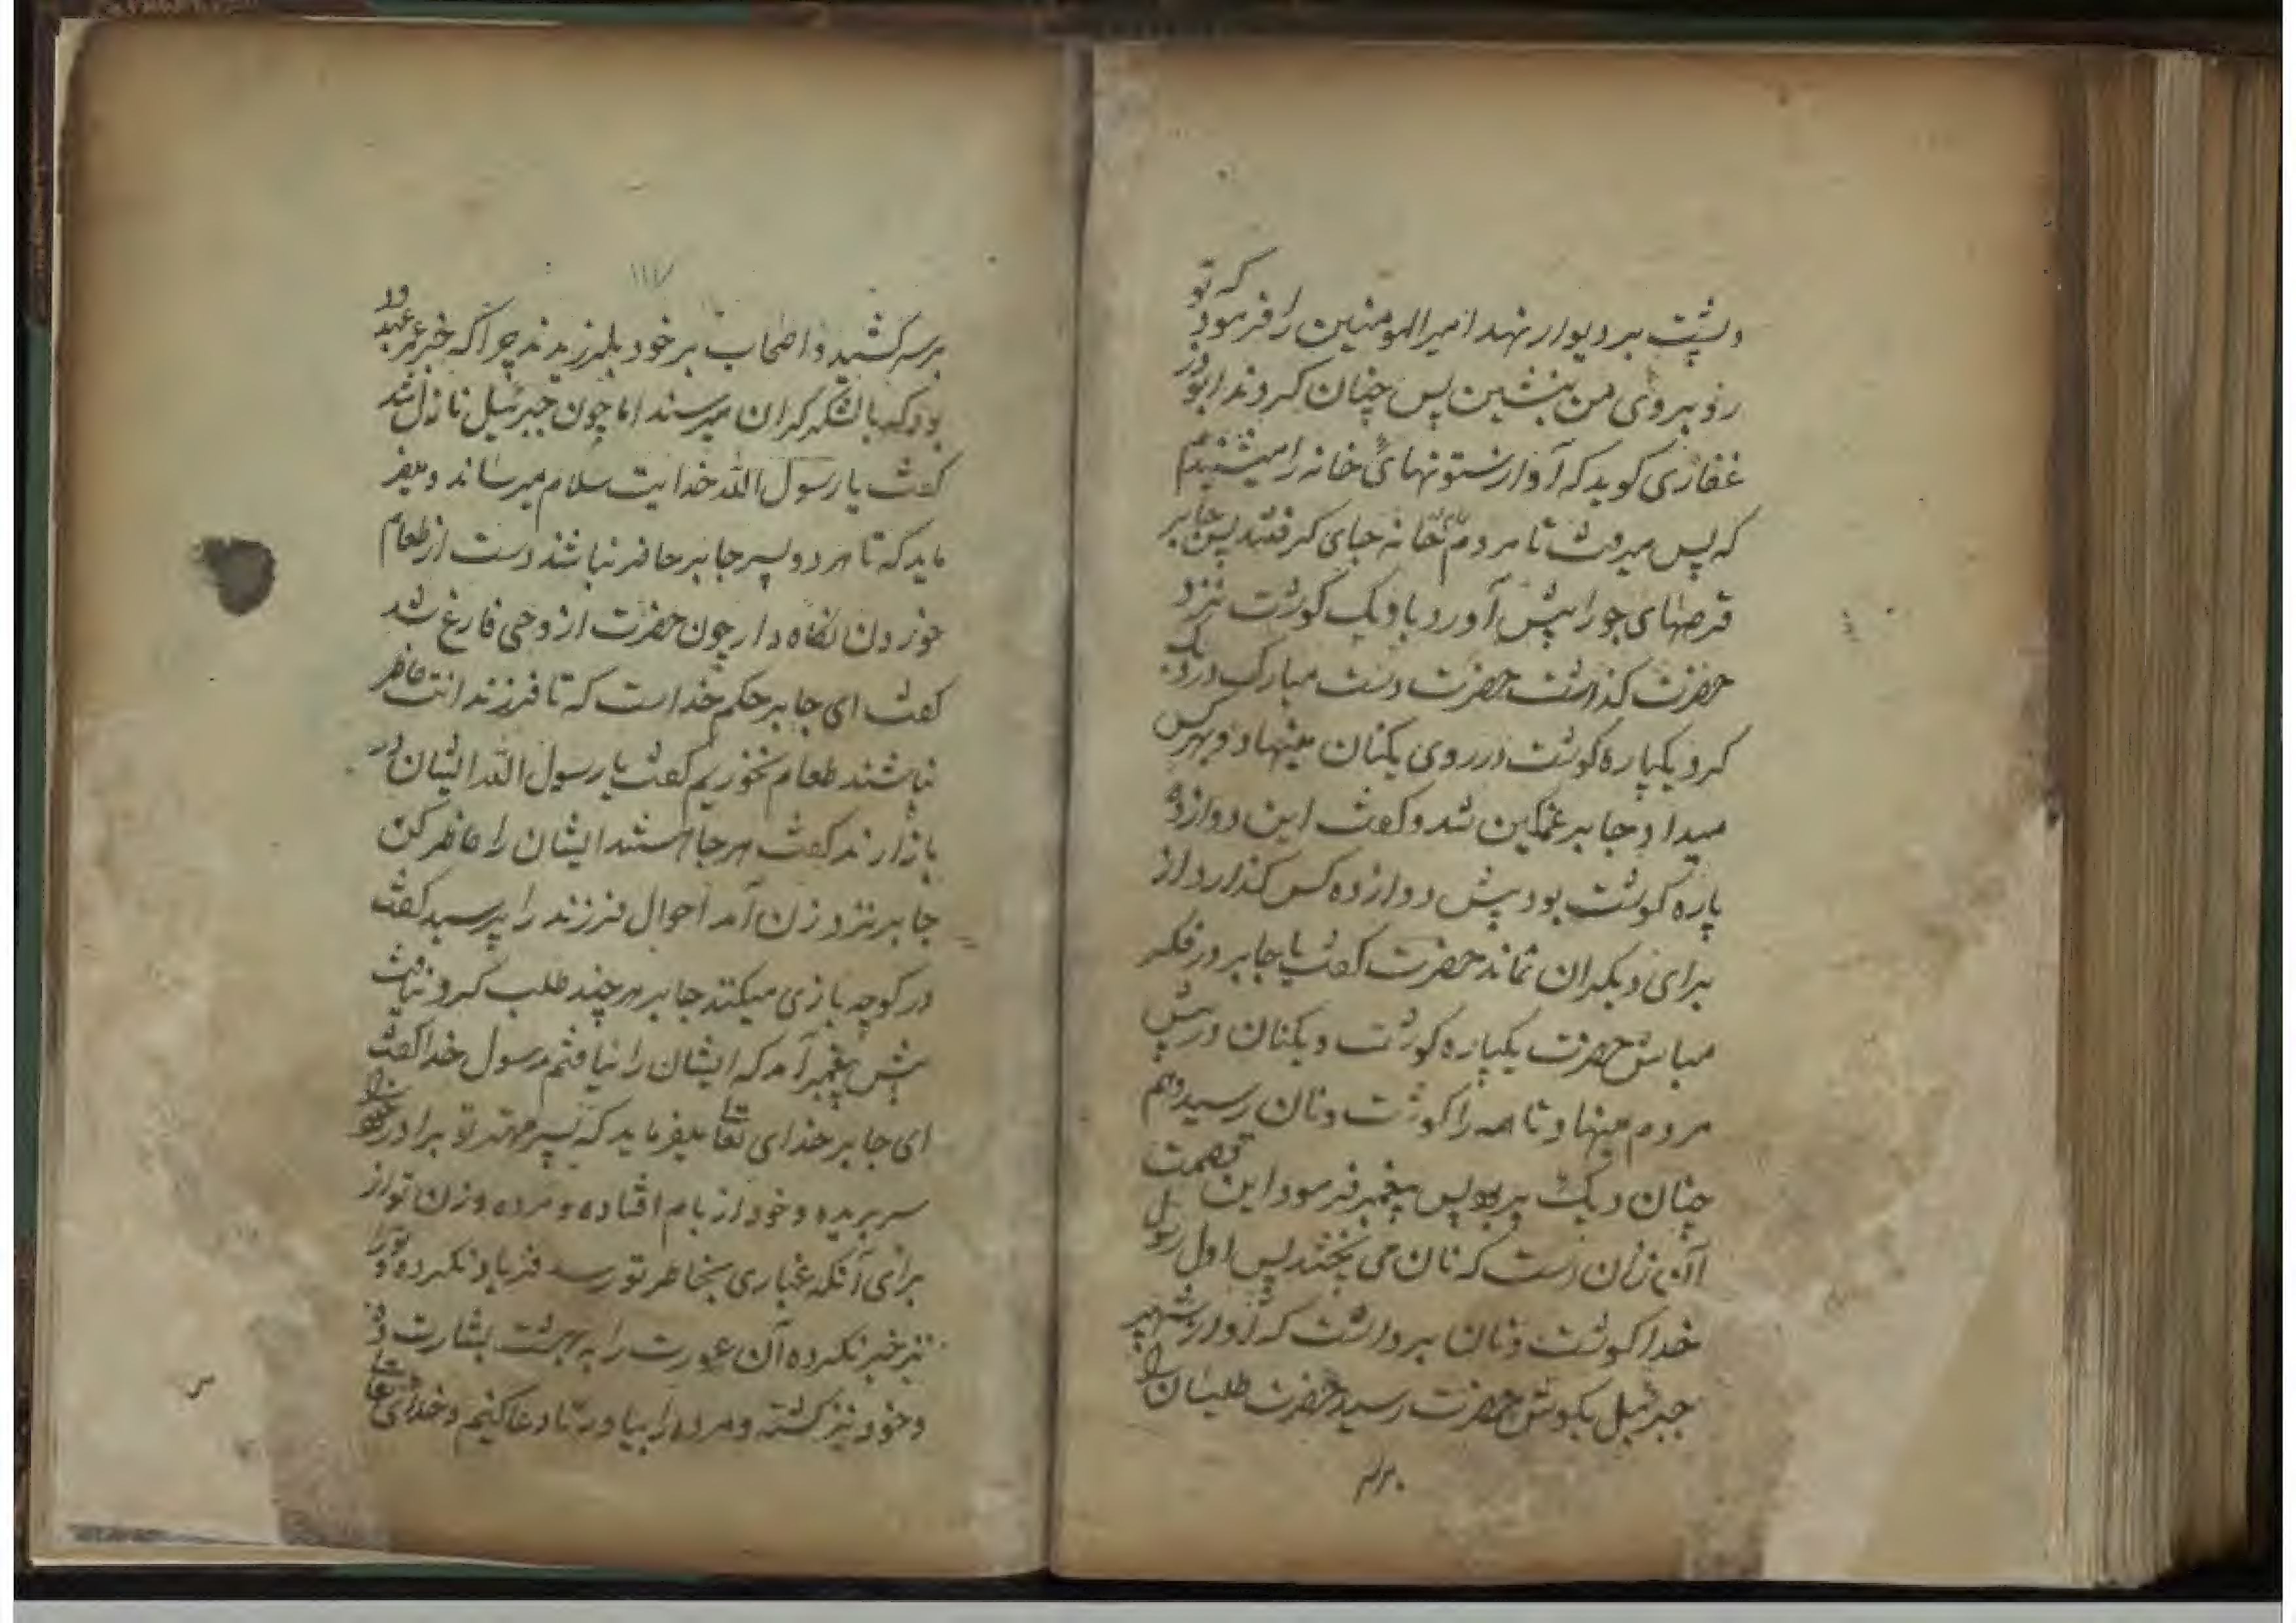 و پشت بر دیوار نهد امیرالمومنین را فرمود که تو
رو بروی من بنشین پس چنان کردند ابوذر
غفاری کوید که آواز ستونهای خانه را میشنیدم
که پس میرفت تا مردم بخانه جای کرفتند پس جابر
قرصهای جو را پیش آورد با دیک کوشت نزد
حضرت کذاشت حضرت دست مبارک در دیک
کرد یکپاره کوشت در روی یکنان مینهاد و بهرکس
میداد جابر غمکین شد و کفت این دوازده
پاره کوشت بود پیش دوازده کس کذارد از
برای دیکران نماند حضرت کفت یا جابر در فکر
مباش حضرت یکپاره کوشت و یکنان در پیش
مردم مینهاد تا همه را کوشت و نان رسید و هم
چنان دیک پر بود پس پیغمبر فرمود این قصمت
آن زنان است که نان می پختند پس اول رسول
خدا کوشت و نان برداشت که آواز شهپر
جبرئیل بکوش حضرت رسید حضرت طلیسان را
برسر
۱۱۷
برسر کشید و اصحاب بر خود بلرزیدند چرا که خبر عمر عبد ود
بود که با لشکر کران میرسند اما چون جبرئیل نازل شد
کفت یا رسول الله خدایت سلام میرساند و میفر
ماید که تا هر دو پسر جابر حاضر نباشند دست از طعام
خوردن نکاه دار چون حضرت از وحی فارغ شد
کفت ای جابر حکم خداست که تا فرزندانت حاظر
نباشند طعام نخوریم کفت یا رسول الله ایشان در
بازارند کفت هر جا هستند ایشان را حاظر کن
جابر نزد زن آمد احوال فرزند را پرسید کفت
در کوچه بازی میکنند جابر هر چند طلب کرد نیافت
پیش پیغمبر آمد که ایشان را نیافتم رسول خدا کفت
ای جابر خدای تعا میفرماید که پسر مهتر تو برادر خود را
سر بریده و خود از بام افتاده و مرده و زن تو از
برای آنکه غباری بخاطر تو رسد فریاد نکرده و تورا
نیز خبر نکرده آن عورت را به بهشت بشارت ده
و خود نیز کشته و مرده را بیاور تا دعا کنیم و خدای تعا